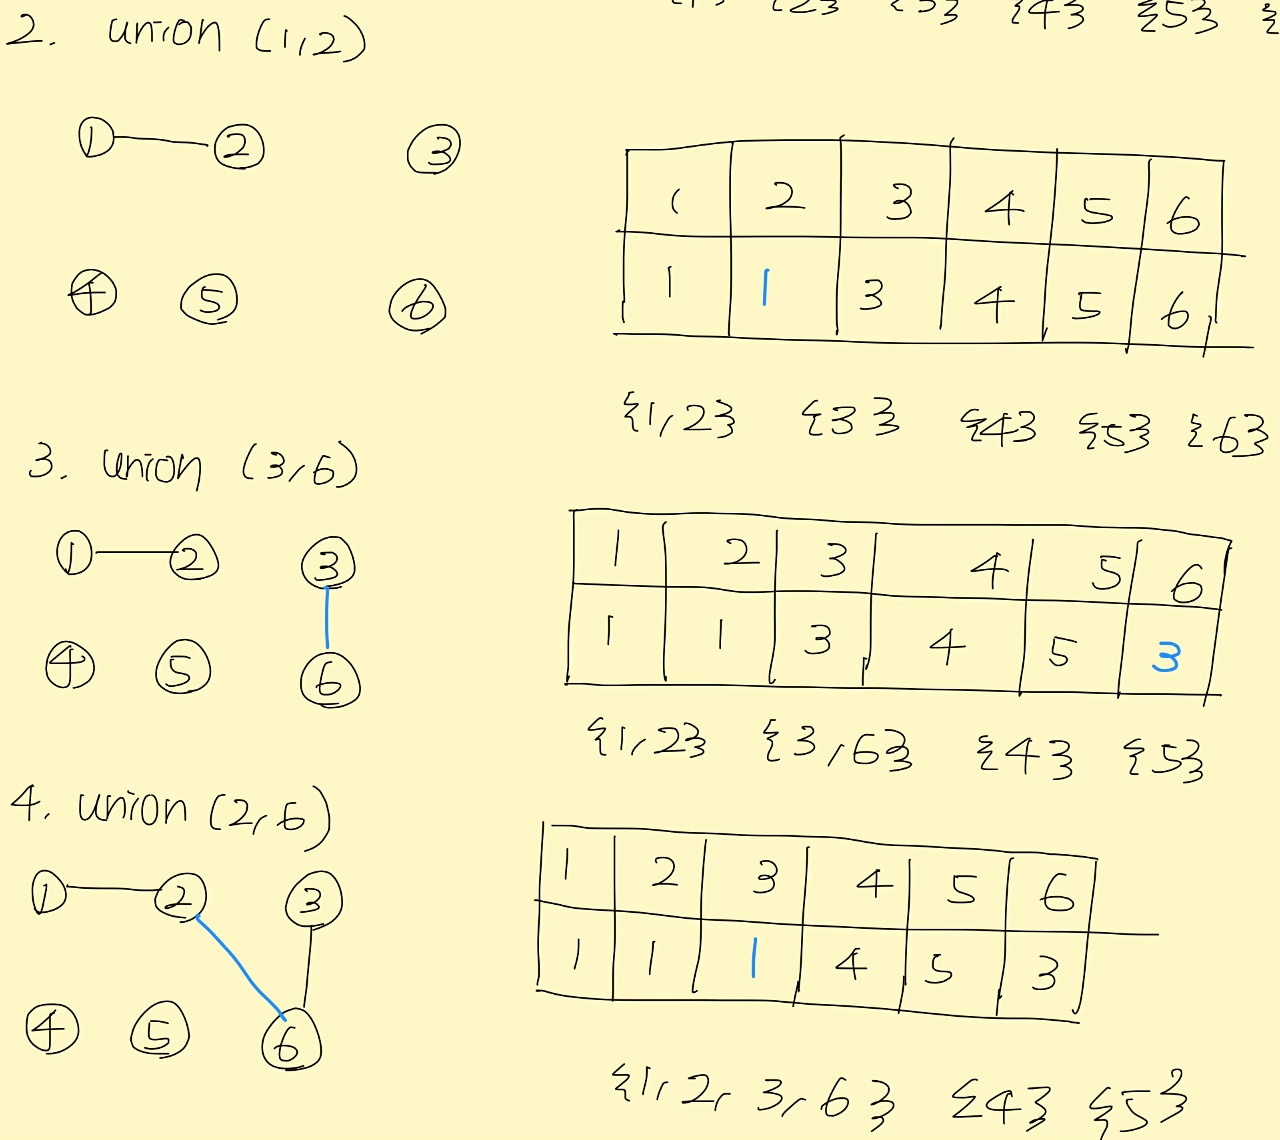 {1} {2} {3} {4} {5} {
2. union (1,2)
1 2 3
4 5 6
1 2 3 4 5 6
1 1 3 4 5 6
{1,2} {3} {4} {5} {6}
3. union (3,6)
1 2 3
4 5 6
1 2 3 4 5 6
1 1 3 4 5 3
{1,2} {3,6} {4} {5}
4. union (2,6)
1 2 3
4 5 6
1 2 3 4 5 6
1 1 1 4 5 3
{1, 2, 3, 6} {4} {5}